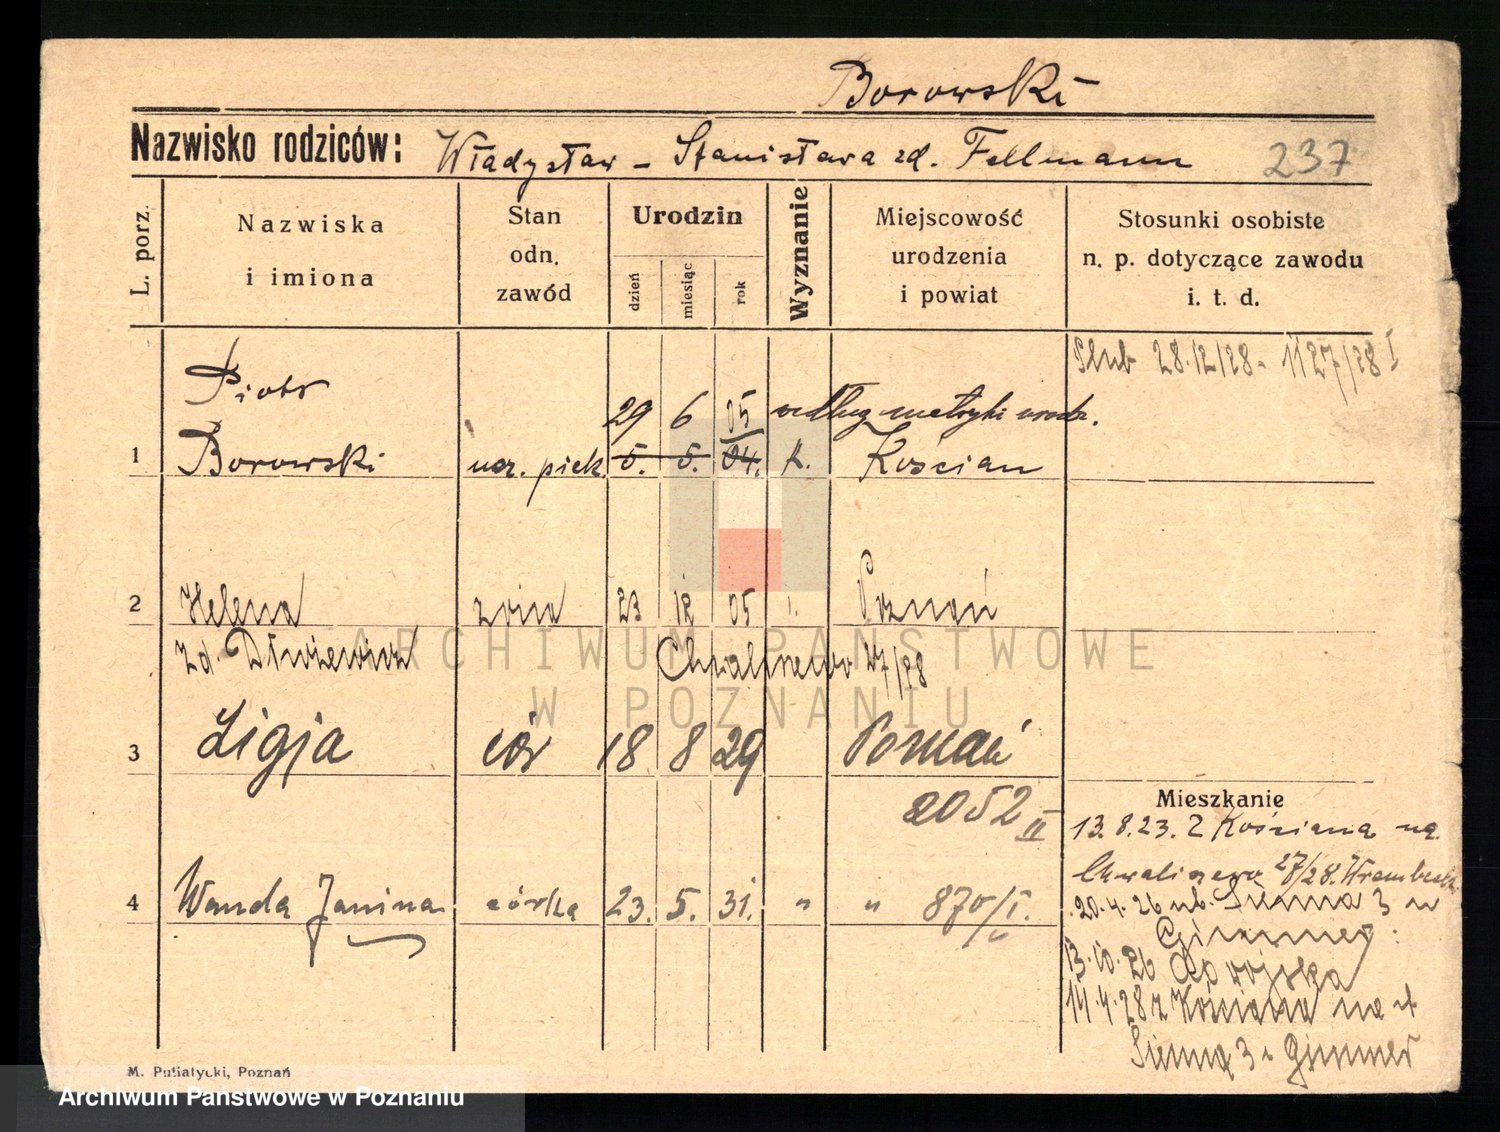 Borowski
Nazwisko rodziców: Władysław – Stanisława zd. Fellmann 237
L. porz.
Nazwiska i imiona
Stan odn. zawód
Urodzin
dzień
miesiąc
rok
Wyznanie
Miejscowość urodzenia i powiat
Stosunki osobiste n. p. dotyczące zawodu i. t. d.
Ślub 28.12/28 - 1127/28 I
Piotr
29 6 05 według metryki urodz.
1 Borowski ucz. piek. 5. 5. 04. k. Kościan
2 Helena żona 23 12 05 Poznań
zd. Dłużewicz Chwaliszewo 27/28
3 Ligja cór 18 8 29 Poznań
2052 II
4 Wanda Janina córka 23. 5. 31. " " 870/I.
Mieszkanie
13.8.23. Z Kościana na
Chwaliszewo 27/28.
20.4.26 ub. Sienna 3 u
13.10.26 do wojska
14.4.28 z Kościana na ul
Sienna 3 u Gimmer
M. Putiatycki, Poznań
ARCHIWUM PAŃSTWOWE
W POZNANIU
Archiwum Państwowe w Poznaniu